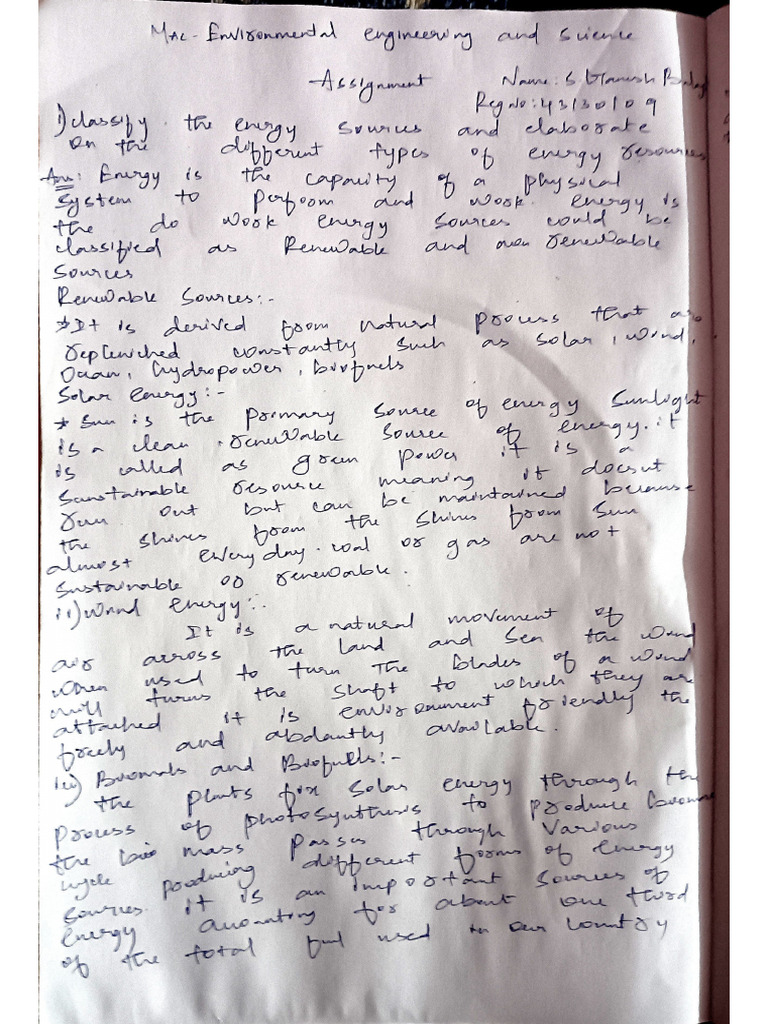 MAC - Environmental engineering and science
Assignment Name: S
Reg No: 43130109
1) classify the energy sources and elaborate
on the different types of energy resources
Ans: Energy is the capacity of a physical
system to perfoom and work energy is
the do work energy sources could be
classified as Renewable and non renewable
Sources
Renewable Sources:-
* It is derived from natural process that are
replenished constantly such as solar, wind,
Ocean, hydropower, biofuels
Solar energy:-
* Sun is the primary source of energy Sunlight
is a clean renewable source of energy. it
is called as green power it is a
Sunstainable resource meaning it doesnt
run out but can be maintained because
the shines from the shines from Sun
almost everyday. coal or gas are not
Sustainable or renewable.
ii) Wind energy:-
It is a natural movement of
air across the land and sea the wind
when used to turn the blades of a wind
mill turns the shaft to which they are
attached it is environment friendly the
freely and abdantly available.
Biomass and Biofuels:-
the plants fix solar energy through the
process of photosynthesis to produce biomass
the bio mass passes through various
cycle producing different forms of energy
sources. it is an important sources of
energy for about one third
of the total fuel used in our country